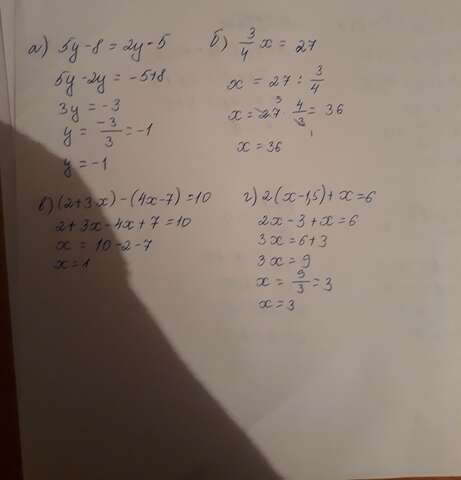 а) 5y - 8 = 2y - 5
5y - 2y = -5+8
3y = -3
y = -3/3 = -1
y = -1
б) 3/4 x = 27
x = 27 : 3/4
x = 27 · 4/3 = 36
x = 36
в) (2+3x) - (4x-7) = 10
2 + 3x - 4x + 7 = 10
x = 10 - 2 - 7
x = 1
г) 2(x - 1,5) + x = 6
2x - 3 + x = 6
3x = 6 + 3
3x = 9
x = 9/3 = 3
x = 3